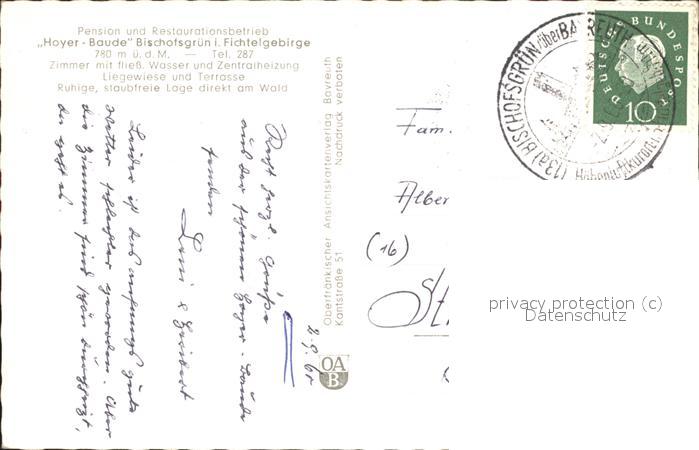 Pension und Restaurationsbetrieb
„Hoyer - Baude" Bischofsgrün i. Fichtelgebirge
780 m ü. d. M. — Tel. 287
Zimmer mit fließ. Wasser und Zentralheizung
Liegewiese und Terrasse
Ruhige, staubfreie Lage direkt am Wald
2.9.60
Recht herzl. Grüße
aus der schönen Hoyer-Baude
senden
Leni & Heribert
Leider ist das anfangs gute
Wetter schlechter geworden. Aber
die Zimmer sind schön
da geht es.
Oberfränkischer Ansichtskartenverlag Bayreuth
Kantstraße 51 Nachdruck verboten
OA
B
(13a) BISCHOFSGRÜN über BAYREUTH
Höhenluftkurort
DEUTSCHE BUNDESPOST
10
Fam.
Alber
(16)
privacy protection (c)
Datenschutz